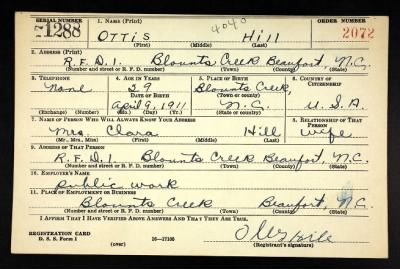 SERIAL NUMBER 1. NAME (Print) ORDER NUMBER
1288 OTTIS Hill 2072
(First) (Middle) (Last)
2. ADDRESS (Print)
R.F.D.1. Blounts Creek Beaufort, N.C.
(Number and street or R. F. D. number) (Town) (County) (State)
3. TELEPHONE 4. AGE IN YEARS 5. PLACE OF BIRTH 6. COUNTRY OF CITIZENSHIP
None 29 Blounts Creek,
DATE OF BIRTH (Town or county)
April 9, 1911 N.C. U.S.A
(Exchange) (Number) (Mo.) (Day) (Yr.) (State or country)
7. NAME OF PERSON WHO WILL ALWAYS KNOW YOUR ADDRESS 8. RELATIONSHIP OF THAT PERSON
Mrs Clara Hill wife
(Mr., Mrs., Miss) (First) (Middle) (Last)
9. ADDRESS OF THAT PERSON
R.F.D.1 Blounts Creek Beaufort, N.C.
(Number and street or R. F. D. number) (Town) (County) (State)
10. EMPLOYER'S NAME
public work
11. PLACE OF EMPLOYMENT OR BUSINESS
Blounts Creek Beaufort, N.C.
(Number and street or R. F. D. number) (Town) (County) (State)
I AFFIRM THAT I HAVE VERIFIED ABOVE ANSWERS AND THAT THEY ARE TRUE.
REGISTRATION CARD
D. S. S. Form 1 (over) 16—17105 (Registrant's signature)